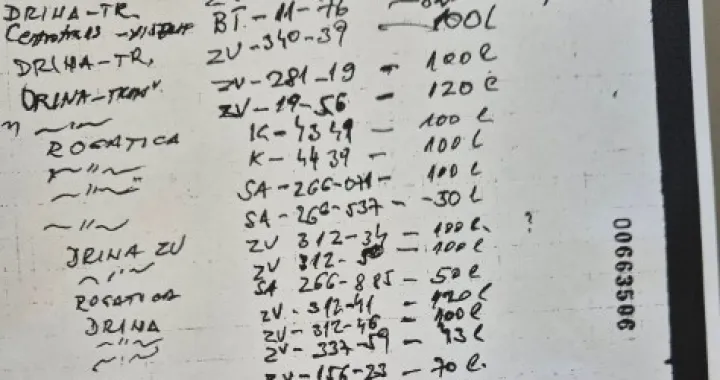 DRINA-TR. BT-11-76
Centrotrans ZV-340-39 - 100l
DRINA-TR, ZV-281-19 - 100l
DRINA-TRANS ZV-19-56 - 120l
〃 ~〃~ K-4349 - 100l
ROGATICA K-4439 - 100l
~〃~ SA-266-071- 100l
~〃~ SA-266-537- -30l
~〃~ ZV 312-34 - 100l. ?
DRINA ZV ZV 312- - 100l
~〃~ SA 266-885 - 50l
ROGATICA ZV-312-41 - 120l
DRINA ZV-312-46 - 100l
~〃~ ZV-337-59 - 43l
~〃~ ZV-156-23 - 70l.
00663506